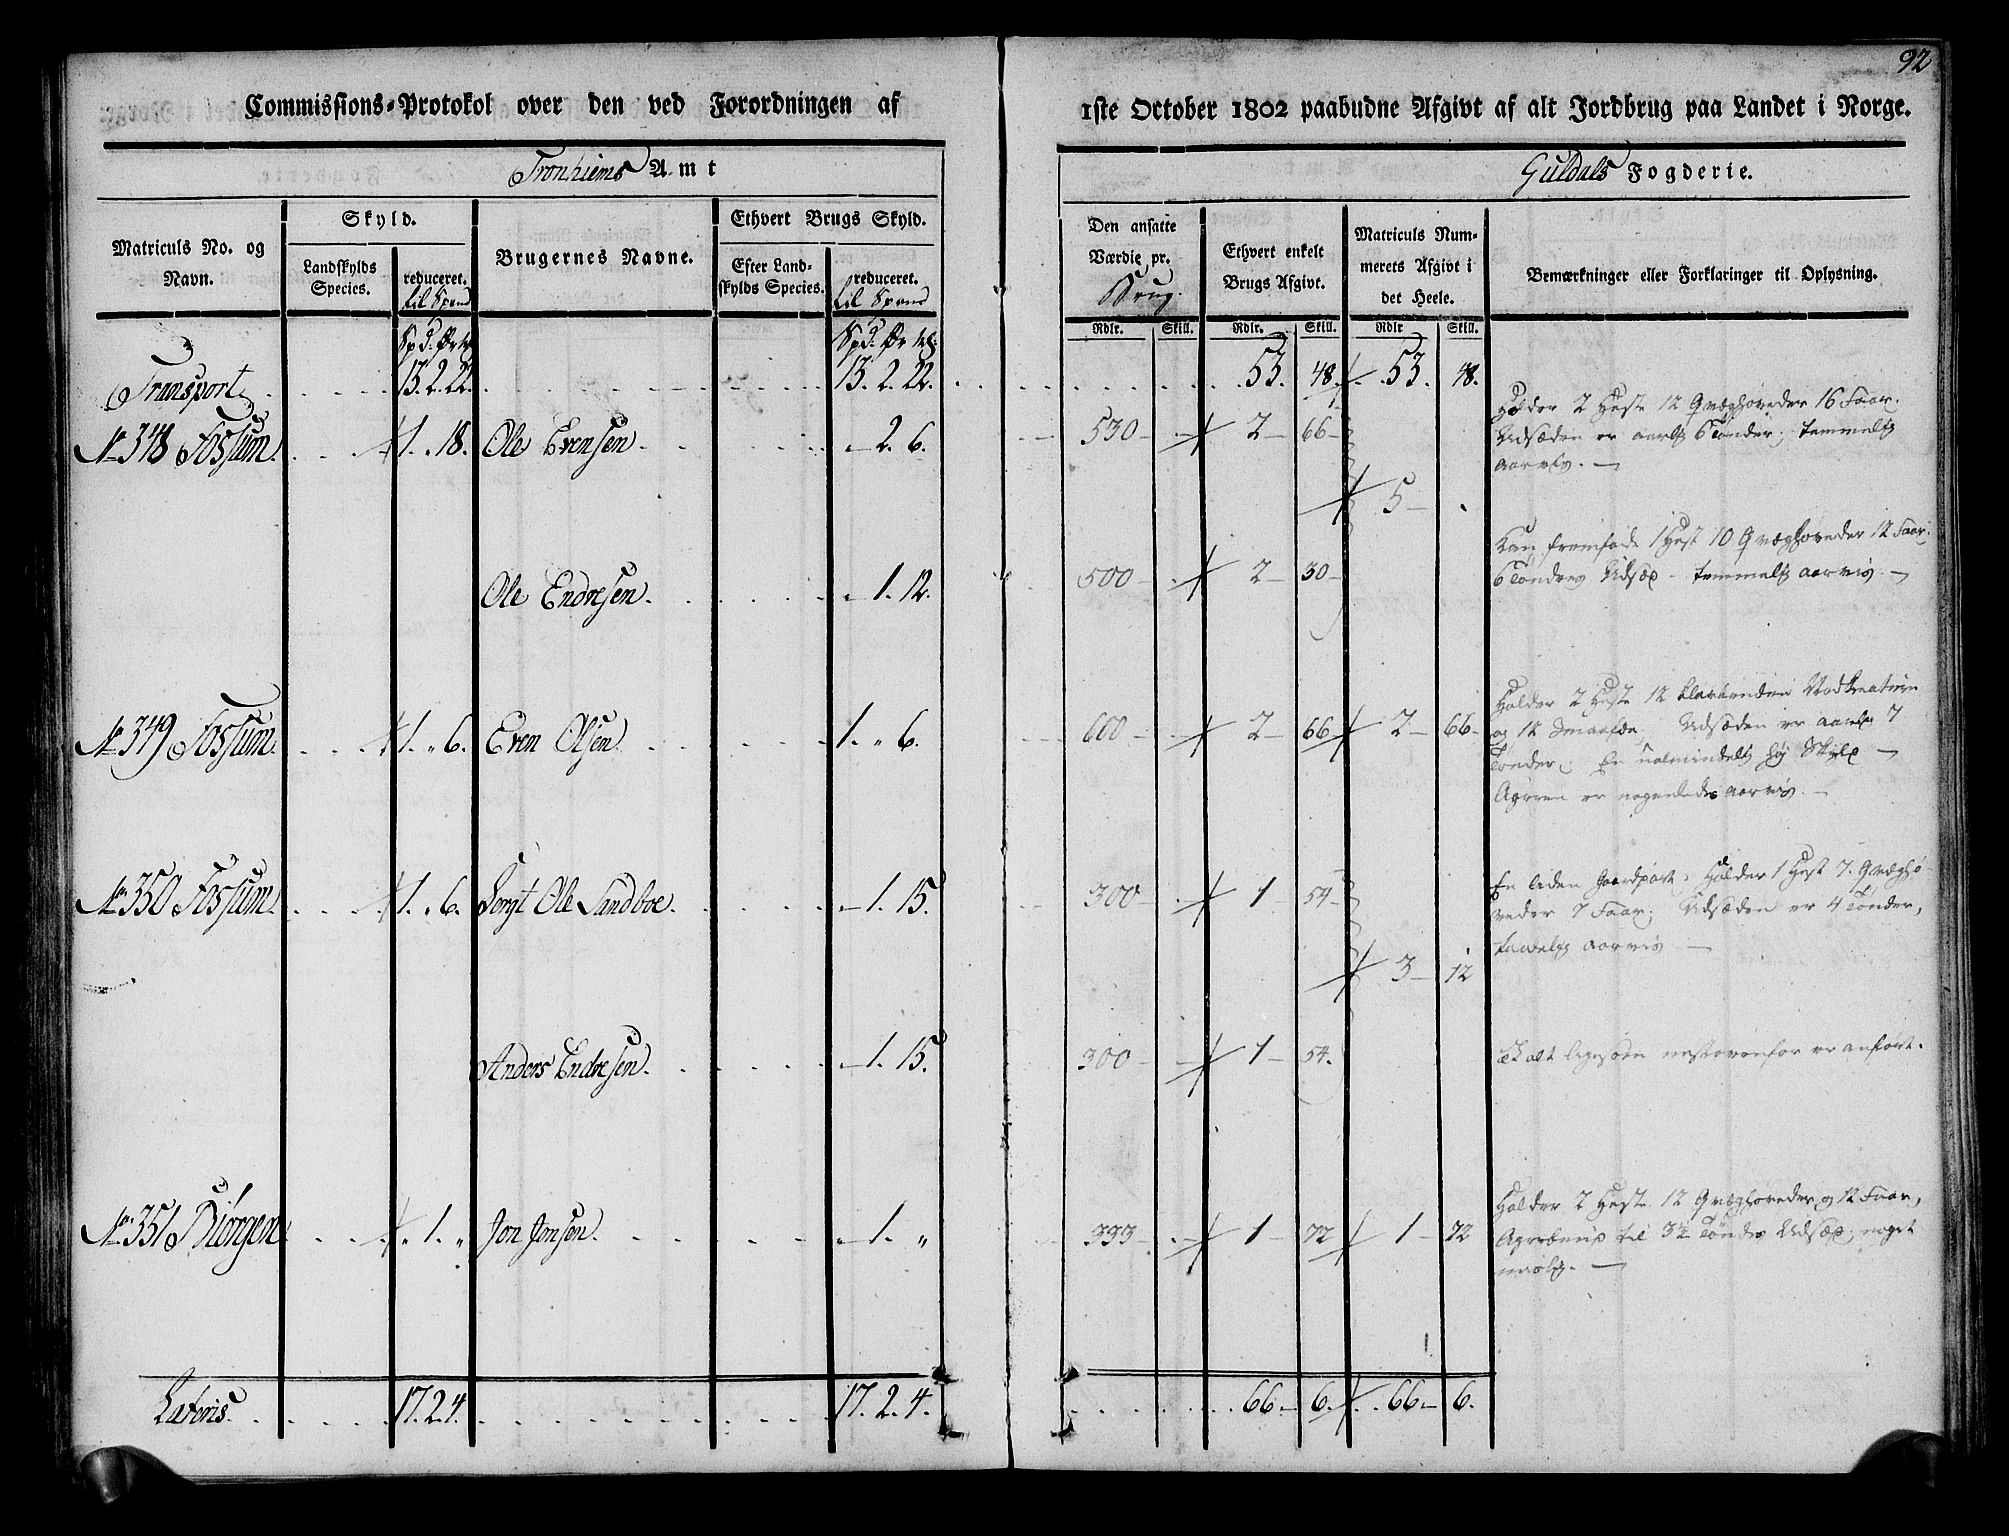 92
Commissions=Protokol over den ved Forordningen af 1ste October 1802 paabudne Afgivt af alt Jordbrug paa Landet i Norge.
Tronhiems Amt
Guldals Fogderie.
Matriculs No. og Navn.
Skyld.
Landskylds Species.
reduceret. til Spand
Brugernes Navne.
Ethvert Brugs Skyld.
Efter Land-skylds Species.
reduceret. til Spand
Den ansatte Værdie pr. Brug.
Ethvert enkelt Brugs Afgivt.
Matriculs Num-merets Afgivt i det Heele.
Bemærkninger eller Forklaringer til Oplysning.
Rdlr. Skill. Rdlr. Skill. Rdlr Skill.
Transport 13. 2. 22. 13. 2. 22. 53. 48. 53. 48.
No 348 Fossum. 1. „ 18. Ole Evensen. 2. 6. 530 2 66
Holder 2 Heste 12 Qvæghoveder 16 Faar.
Udsæden er aarlig 6 Tønder; temmelig
aarvis.
5
Ole Endresen. 1. 12. 500 2 30
Kan fremføde 1 Hest 10 Qvæghoveder 12 Faar.
6 Tønders Udsæd temmelig aarvis
No 349 Fossum. 1. „ 6. Even Olsen. 1. „ 6. 600 2 66 2 66
Holder 2 Heste 12
og 12 Udsæden er aarlig 7
Tønder; En ualmindelig høj Skyld
Ageren er nogenledes aarvis.
No 350 Fossum. 1. „ 6. Sergt Ole Sandboe. 1. 15. 300 1 54
En liden Gaardpart; Holder 1 Hest 7 Qvægho-
veder 7 Faar; Udsæden er 4 Tønder,
aarvis
3 12
Anders Endresen. 1. 15. 300 1 54.
er anført.
No 351 Kiörgen. „ 1. „ Jon Jonsen. 1. „ 333 1 72 1 72
Holder 2 Heste 12 Qvæghoveder og 12 Faar,
til 3½ Tønder Udsæd, noget
Lateris. 17. 2. 4. 17. 2. 4. 66. 6. 66. 6.